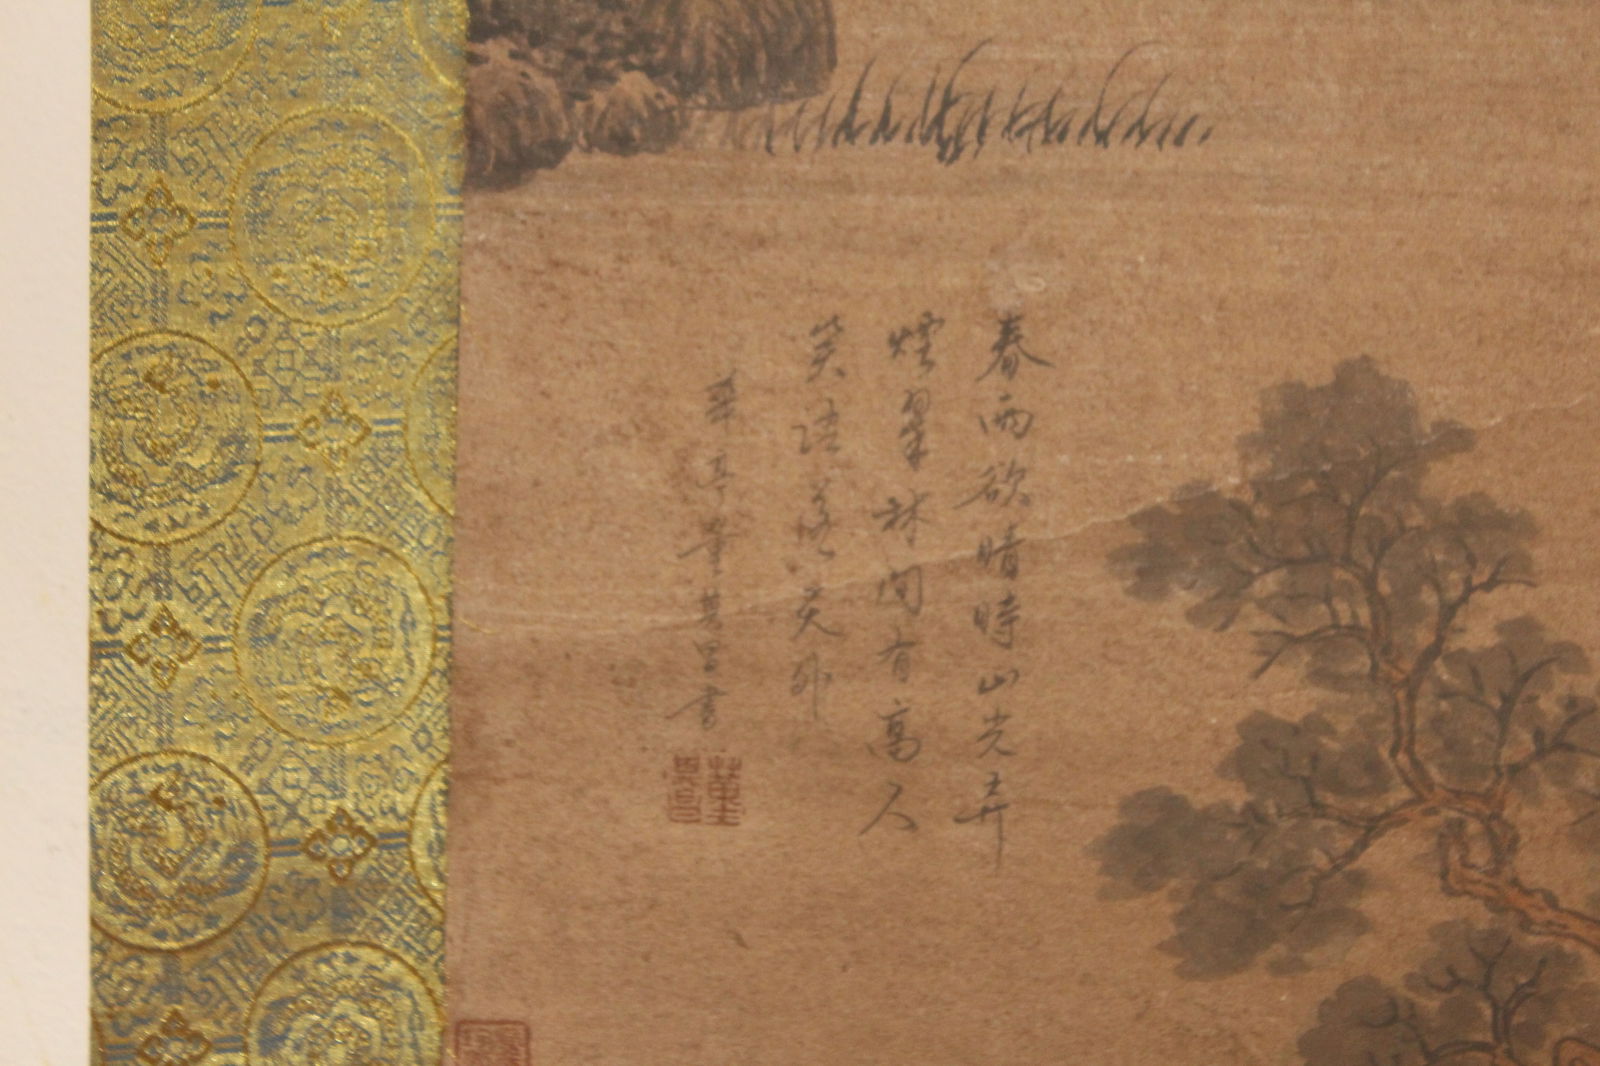 春雨欲晴時山光弄
煙翠林間有高人
笑語落天外
華亭董其昌書
董其昌